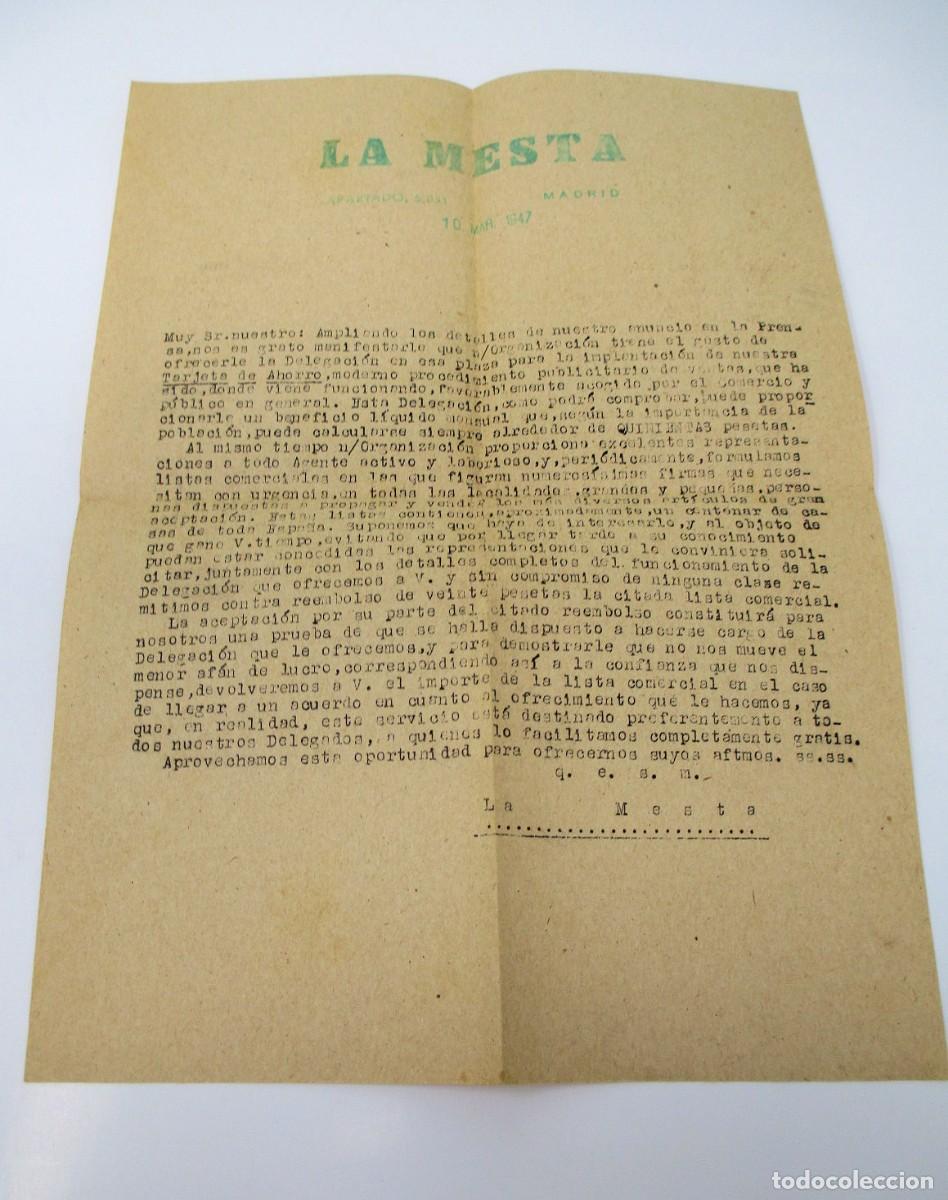 LA MESTA
APARTADO, MADRID
10 MAR. 1947
Muy Sr.nuestro: Ampliando los detalles de nuestro anuncio en la Pren-
sa,nos es grato manifestarle que n/Organización tiene el gusto de
ofrecerle la Delegación en esa plaza para la implantación de nuestra
Tarjeta de Ahorro,moderno procedimiento publicitario de ventas,que ha
sido,donde viene funcionando,favorablemente acogido por el comercio y
público en general. Esta Delegación,como podrá comprobar,puede propor
cionarle un beneficio líquido mensual que,según la importancia de la
población,puede calcularse siempre alrededor de QUINIENTAS pesetas.
Al mismo tiempo n/Organización proporciona excelentes representa-
ciones a todo Agente activo y laborioso,y,periódicamente,formulamos
listas comerciales en las que figuran numerosísimas firmas que nece-
sitan con urgencia,en todas las localidades,grandes y pequeñas,perso-
nas dispuestas a propagar y vender los más diversos artículos de gran
aceptación. Estas listas contienen,aproximadamente,un centenar de ca-
sas de toda España. Suponemos que haya de interesarle,y al objeto de
que gane V.tiempo,evitando que por llegar tarde a su conocimiento
puedan estar concedidas las representaciones que le conviniera soli-
citar,juntamente con los detalles completos del funcionamiento de la
Delegación que ofrecemos a V. y sin compromiso de ninguna clase re-
mitimos contra reembolso de veinte pesetas la citada lista comercial.
La aceptación por su parte del citado reembolso constituirá para
nosotros una prueba de que se halla dispuesto a hacerse cargo de la
Delegación que le ofrecemos,y para demostrarle que no nos mueve el
menor afán de lucro,correspondiendo así a la confianza que nos dis-
pense,devolveremos a V. el importe de la lista comercial en el caso
de llegar a un acuerdo en cuanto al ofrecimiento que le hacemos, ya
que, en realidad, este servicio está destinado preferentemente a to-
dos nuestros Delegados, a quienes lo facilitamos completamente gratis.
Aprovechamos esta oportunidad para ofrecernos suyos aftmos. ss.ss.
q. e. s. m.
La Mesta
todocoleccion